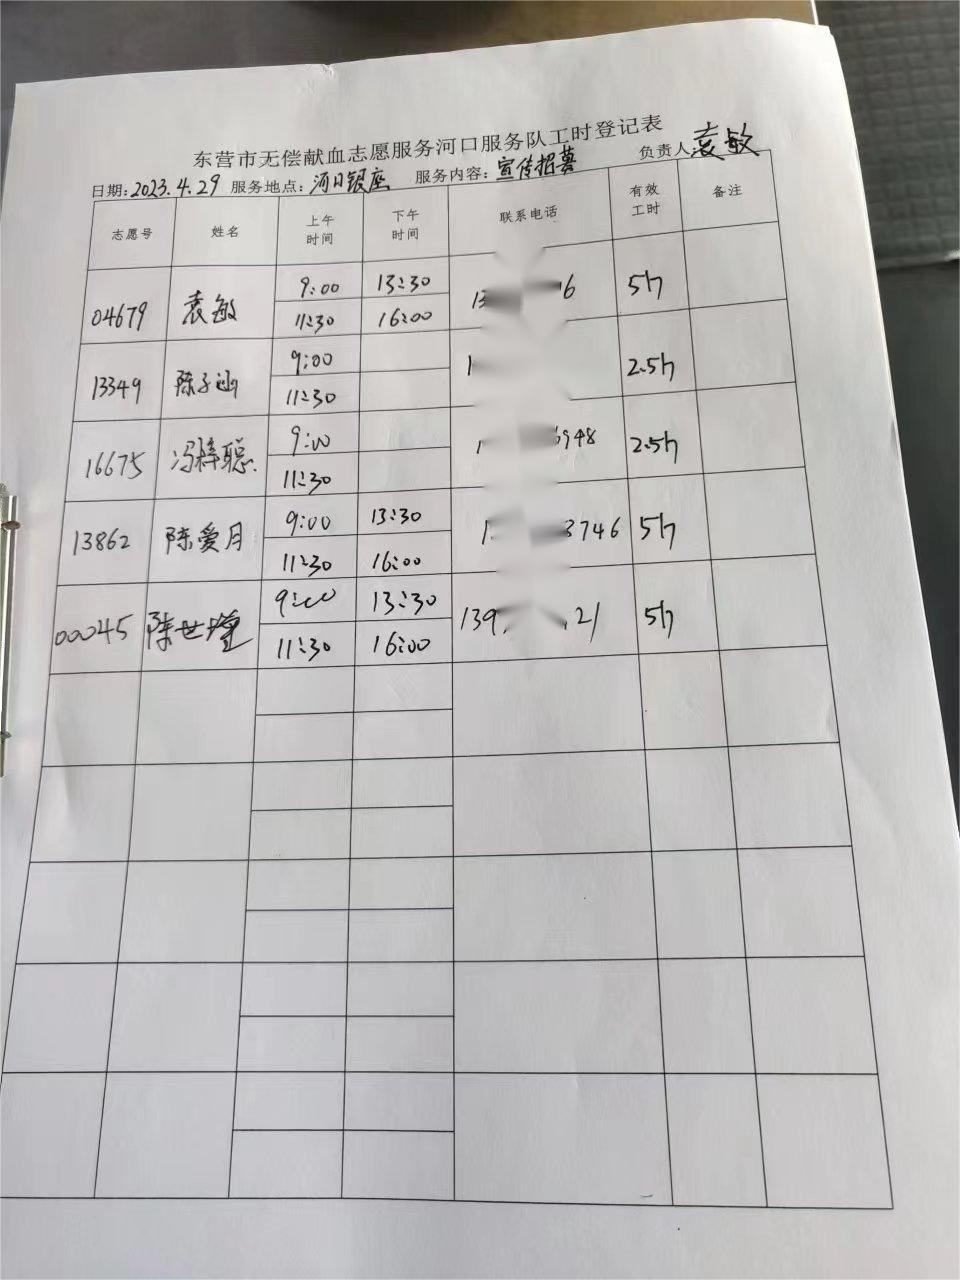 东营市无偿献血志愿服务河口服务队工时登记表
日期:2023.4.29 服务地点:河口银座 服务内容:宣传招募 负责人袁敏
志愿号 姓名 上午时间 下午时间 联系电话 有效工时 备注
04679 袁敏 9:00 13:30 13 6 5h
11:30 16:00
13349 陈子涵 9:00 1 2.5h
11:30
16675 冯梓聪 9:00 1 6948 2.5h
11:30
13862 陈爱月 9:00 13:30 1 3746 5h
11:30 16:00
00045 陈世 9:00 13:30 139 21 5h
11:30 16:00